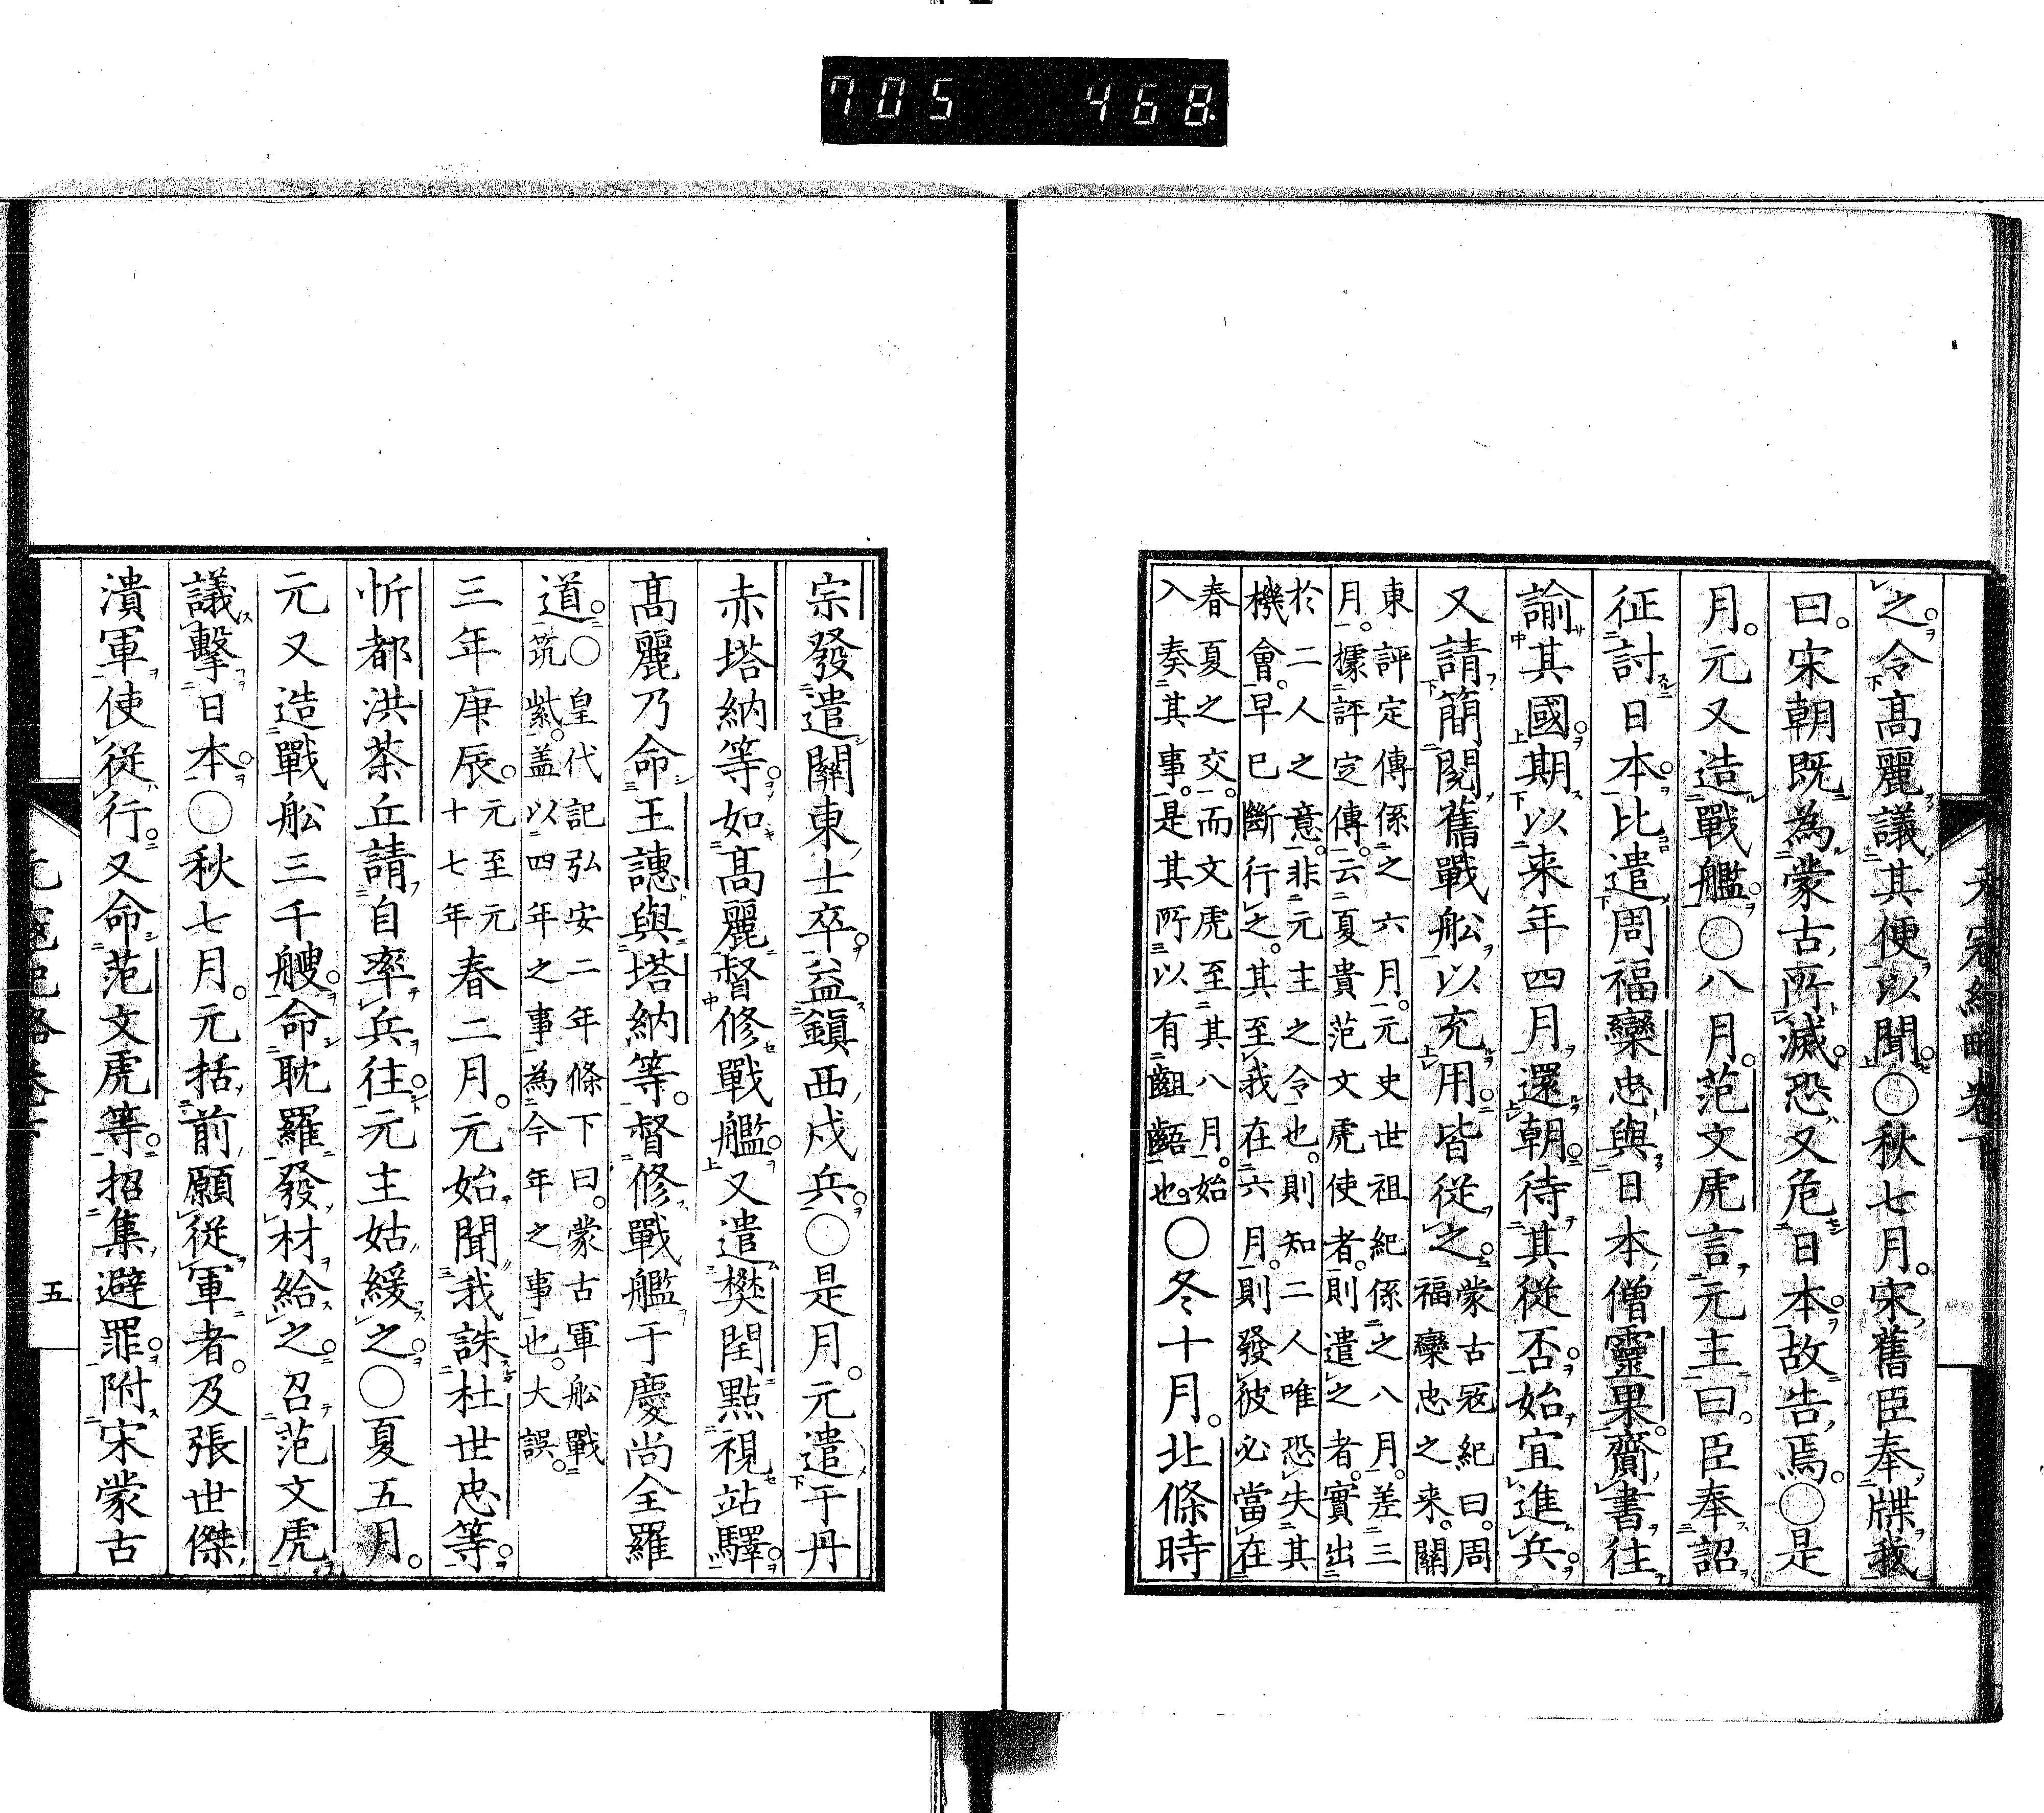 705 468
元寇紀略卷下
之令高麗議其便以聞○秋七月宋舊臣奉牒我
曰宋朝既為蒙古所滅恐又危日本故告焉○是
月元又造戰艦○八月范文虎言元主曰臣奉詔
征討日本比遣周福欒忠與日本僧靈果齎書往
諭其國期以来年四月還朝待其從否始宜進兵
又請簡閱舊戰舩以充用皆從之蒙古寇紀曰周
福欒忠之来關
東評定傳係之六月元史世祖紀係之八月差三
月據評定傳云夏貴范文虎使者則遣之者實出
於二人之意非元主之令也則知二人唯恐失其
機會早已斷行之其至我在六月則發彼必當在
春夏之交而文虎至其八月始
入奏其事是其所以有齟齬也○冬十月北條時
宗發遣關東士卒益鎮西戍兵○是月元遣于丹
赤塔納等如高麗督修戰艦又遣樊閏點視站驛
高麗乃命王譓與塔納等督修戰艦于慶尚全羅
道○皇代記弘安二年條下曰蒙古軍舩戰
筑紫蓋以四年之事為今年之事也大誤
三年庚辰元至元
十七年春二月元始聞我誅杜世忠等
忻都洪茶丘請自率兵往元主姑緩之○夏五月
元又造戰舩三千艘命耽羅發材給之召范文虎
議擊日本○秋七月元括前願從軍者及張世傑
潰軍使從行又命范文虎等招集避罪附宋蒙古
五